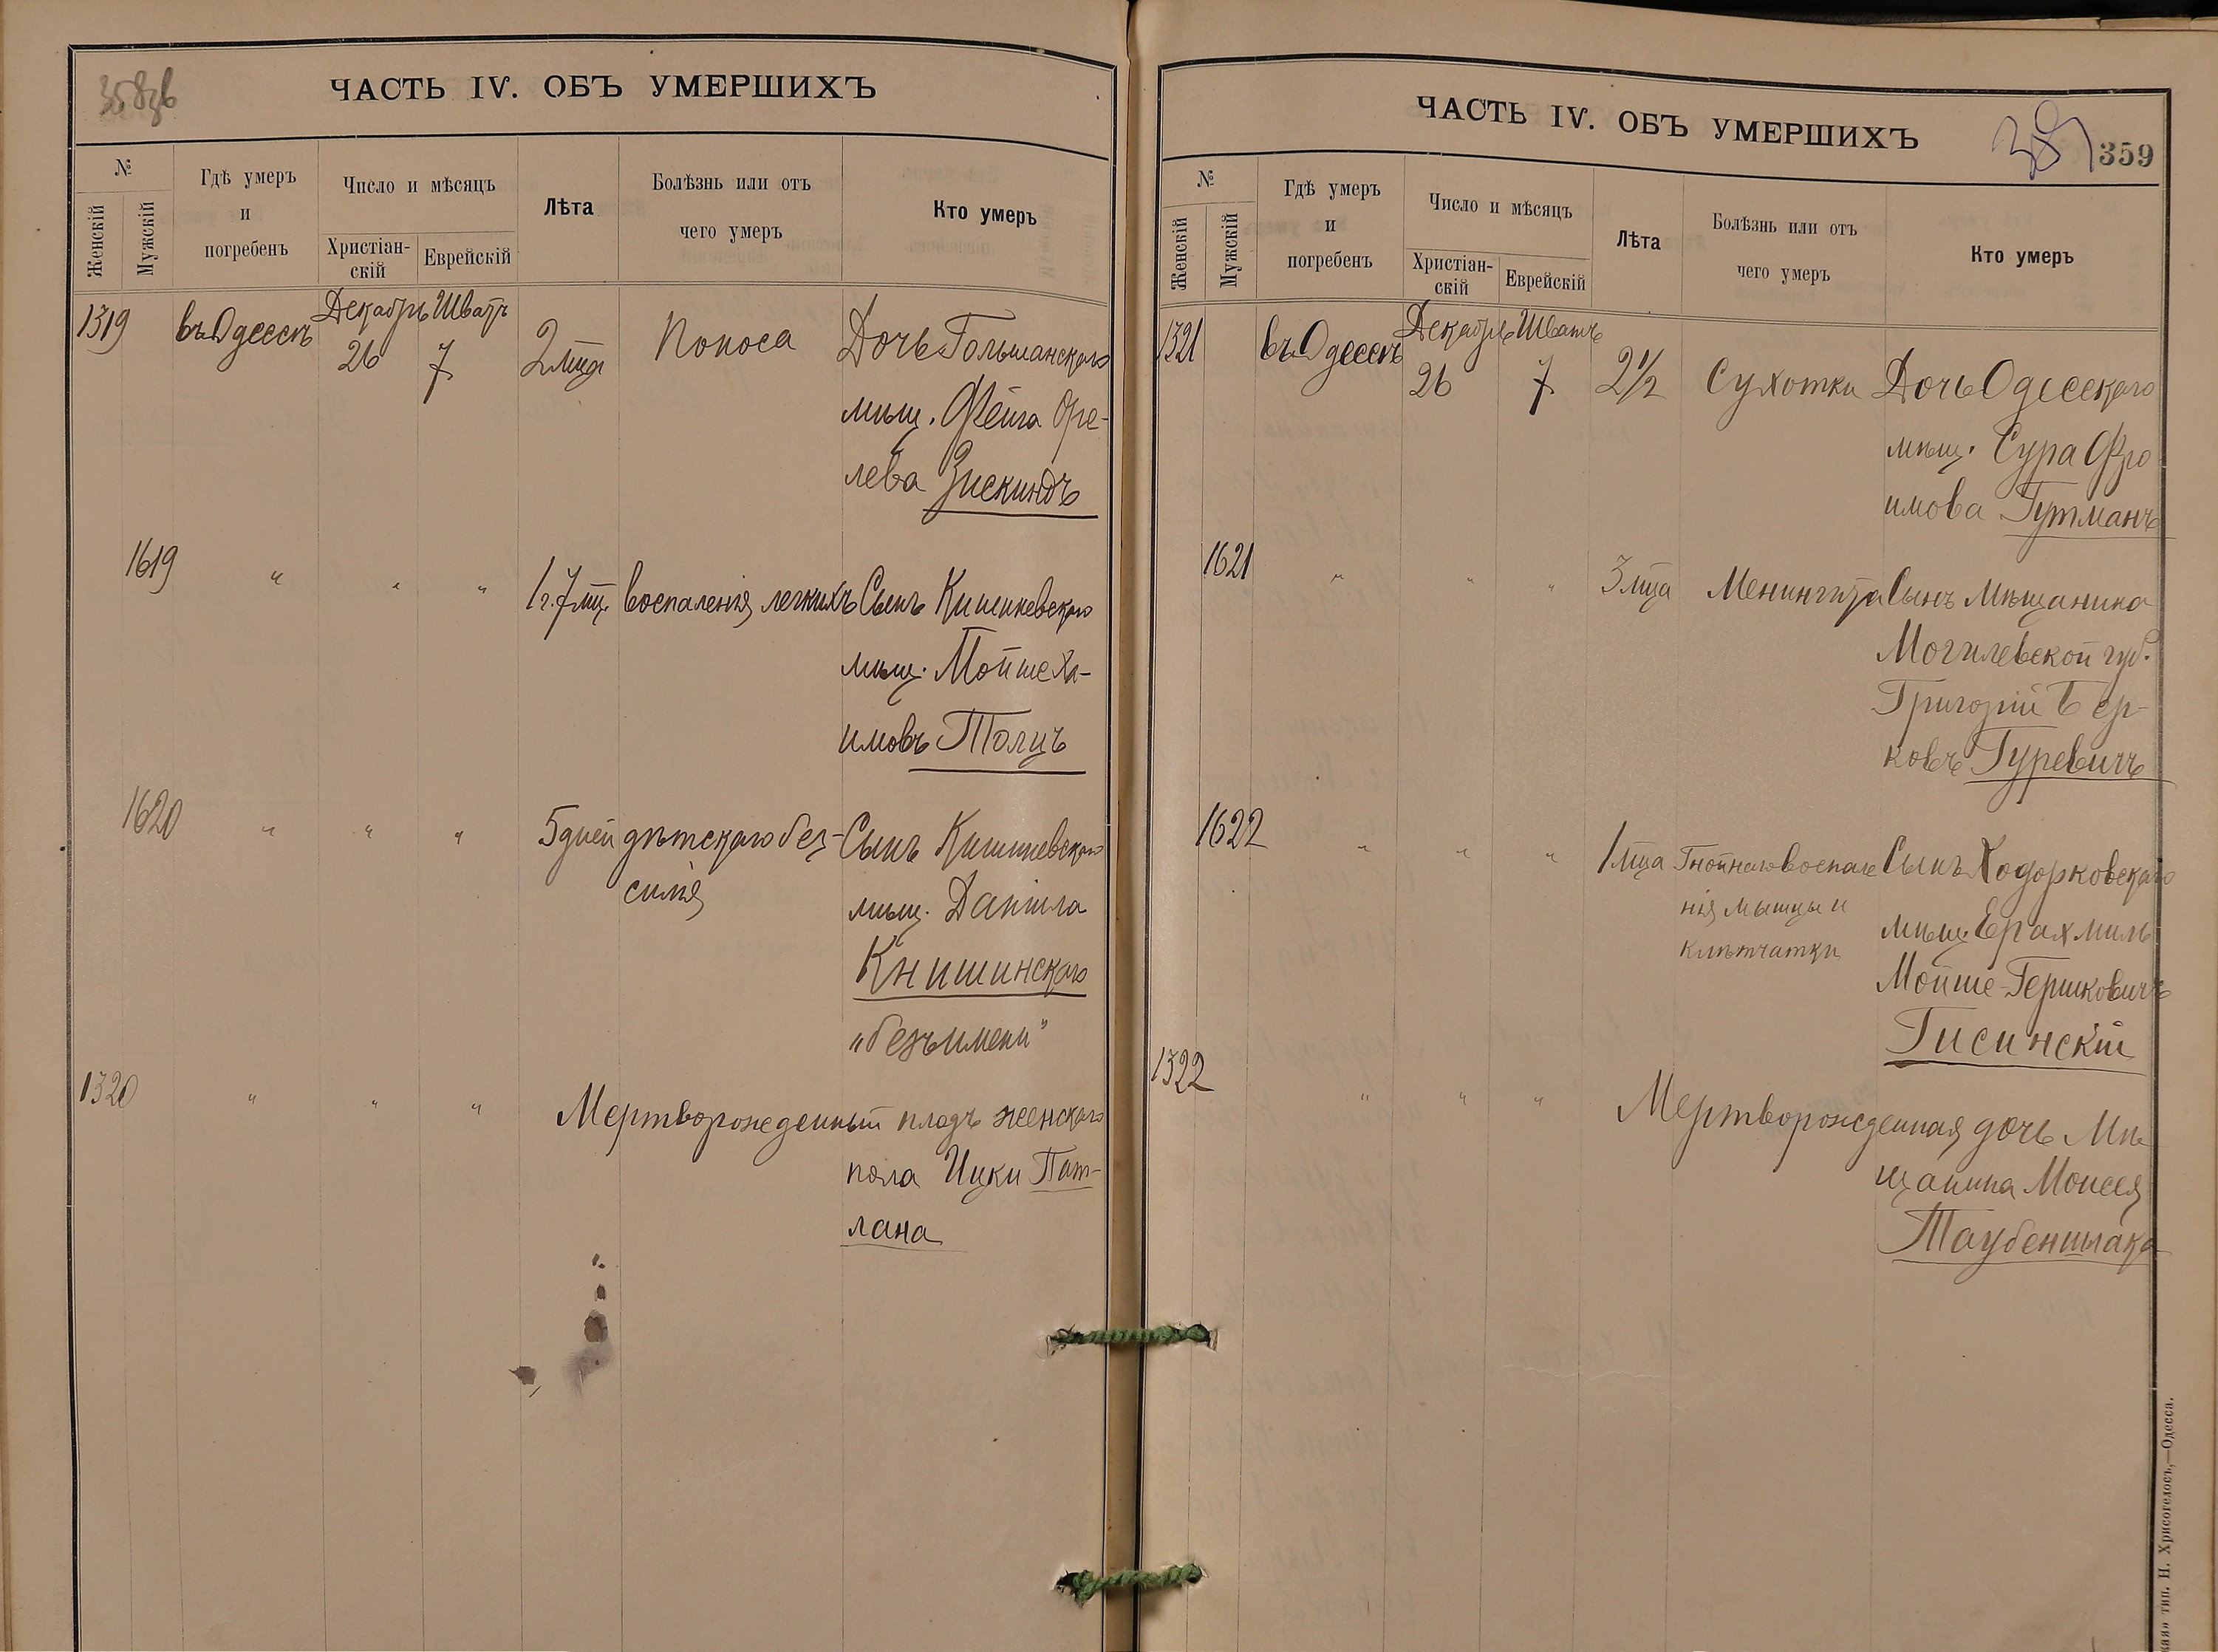 358зв
ЧАСТЬ IV. ОБЪ УМЕРШИХЪ
№
Женскій
Мужскій
Гдѣ умеръ
и
погребенъ
Число и мѣсяцъ
Христіан-
скій
Еврейскій
Лѣта
Болѣзнь или отъ
чего умеръ
Кто умеръ
1319 въ Одессѣ Декабрь 26 Шватъ 7 2 мца Поноса Дочь Гольшанскаго
мѣщ. Фейга Оре-
лева Зискиндъ
1619 " " " 1 г. 7 мц. воспаленія легкихъ Сынъ Кишиневскаго
мѣщ. Мойше Ха-
имовъ Толцъ
1620 " " " 5 дней дѣтскаго без- Сынъ Кишиневскаго
силія мѣщ. Даніила
Книшинскаго
„безъ имени"
1320 " " " Мертворожденный плодъ женскаго
пола Ицки Пат-
лана
ЧАСТЬ IV. ОБЪ УМЕРШИХЪ
359
№
Женскій
Мужскій
Гдѣ умеръ
и
погребенъ
Число и мѣсяцъ
Христіан-
скій
Еврейскій
Лѣта
Болѣзнь или отъ
чего умеръ
Кто умеръ
1321 въ Одессѣ Декабрь 26 Шватъ 7 2 1/2 Сухотка Дочь Одесскаго
мѣщ. Сура Фро
имова Гутманъ
1621 " " " 3 мца Менингита Сынъ Мѣщанина
Могилевской губ.
Григорій Бер-
ковъ Гуревичъ
1622 " " " 1 мца Гнойнаго воспале Сынъ Ходорковскаго
нія мышцы и мѣщ. Ерахмиль
клѣтчатки Мойше-Гершковичъ
Гисинскій
1322 " " " Мертворожденная дочь Мѣ
щанина Моисея
Таубеншлака
тип. Н. Хрисогелосъ,—Одесса.